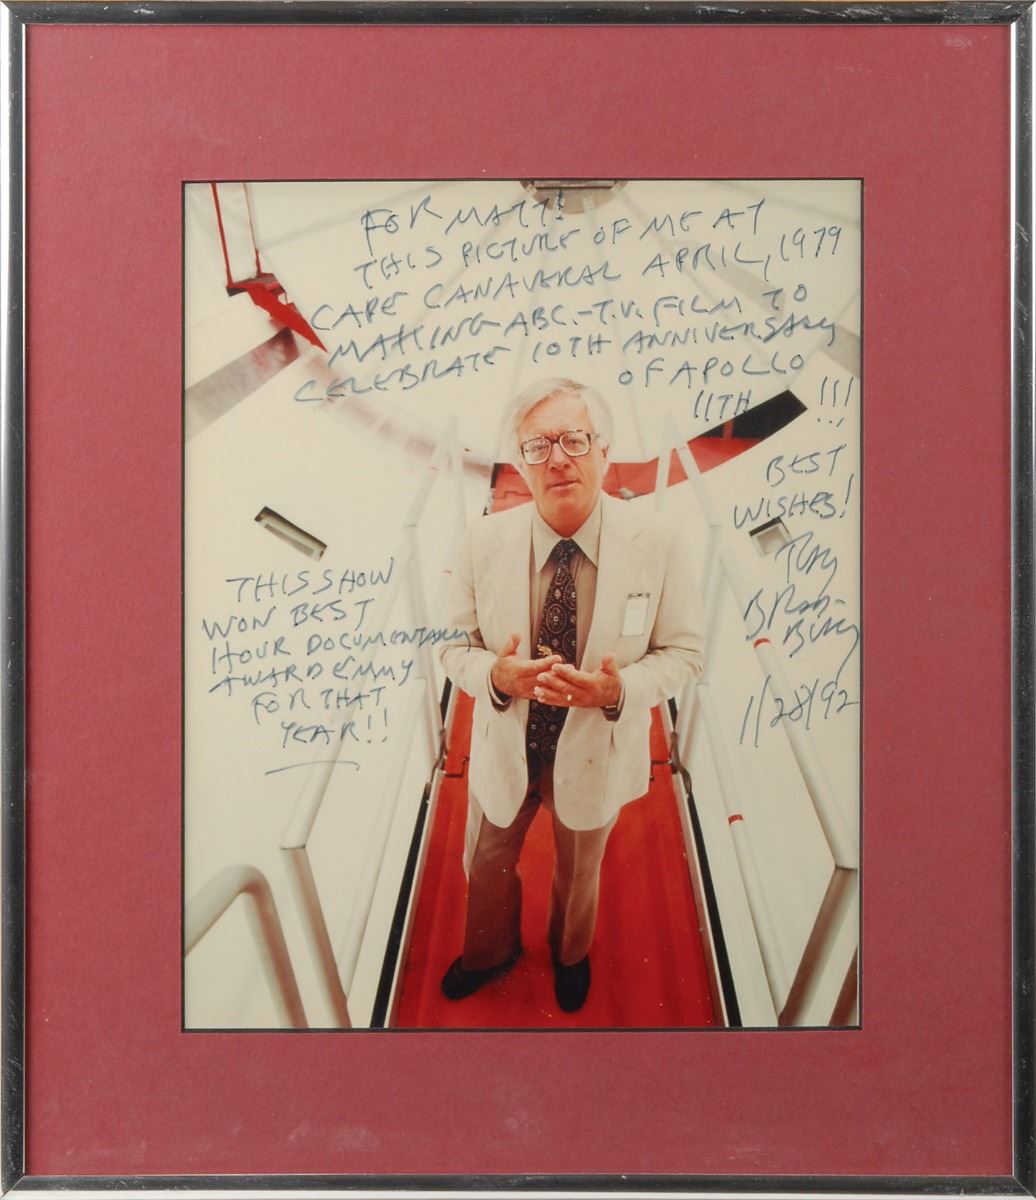 FOR MATT!
THIS PICTURE OF ME AT
CAPE CANAVERAL APRIL, 1979
MAKING ABC.-T.V. FILM TO
CELEBRATE 10TH ANNIVERSARY
OF APOLLO
11TH !!!
BEST
WISHES!
Ray
BRad-
Bury
1/28/92
THIS SHOW
WON BEST
HOUR DOCUMENTARY
AWARD EMMY
FOR THAT
YEAR!!